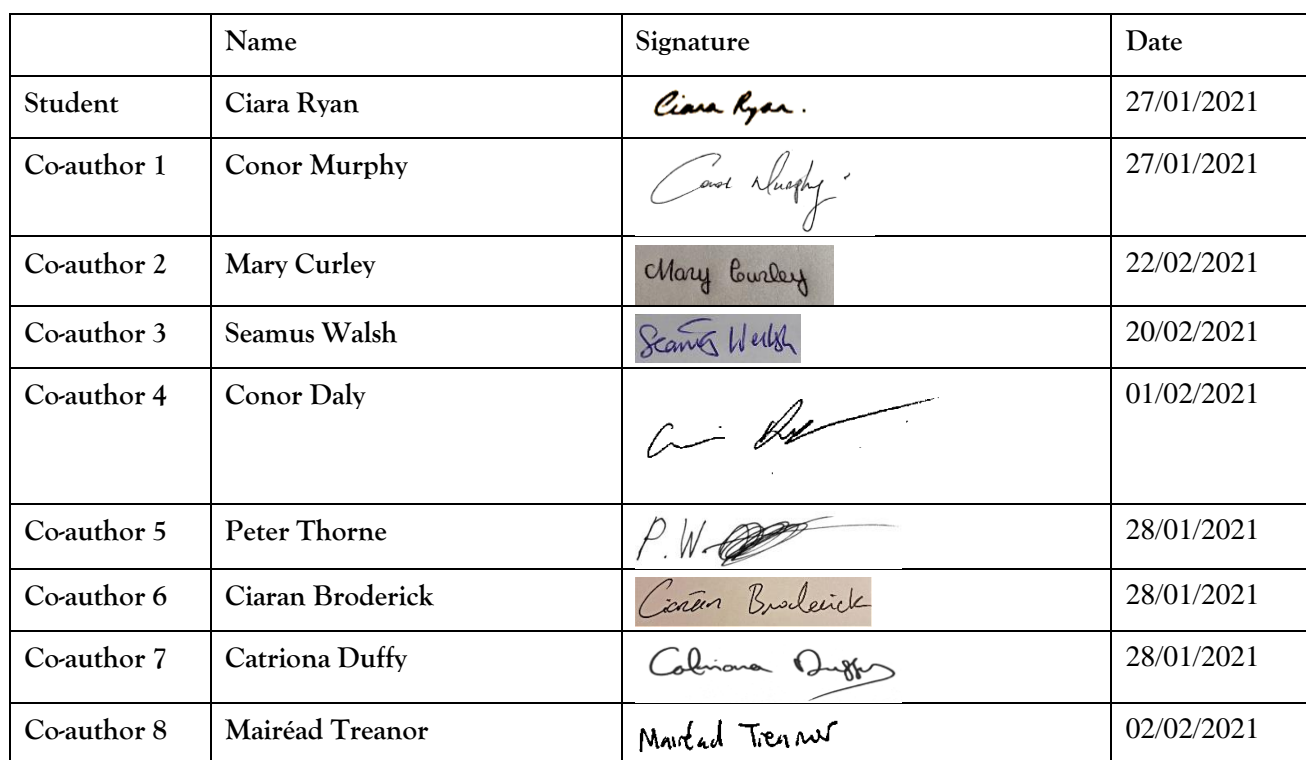 Name Signature Date
Student Ciara Ryan Ciara Ryan. 27/01/2021
Co-author 1 Conor Murphy Conor Murphy 27/01/2021
Co-author 2 Mary Curley Mary Curley 22/02/2021
Co-author 3 Seamus Walsh Seamus Walsh 20/02/2021
Co-author 4 Conor Daly 01/02/2021
Co-author 5 Peter Thorne P.W. 28/01/2021
Co-author 6 Ciaran Broderick Ciarán Broderick 28/01/2021
Co-author 7 Catriona Duffy Catriona Duffy 28/01/2021
Co-author 8 Mairéad Treanor Mairéad Treanor 02/02/2021